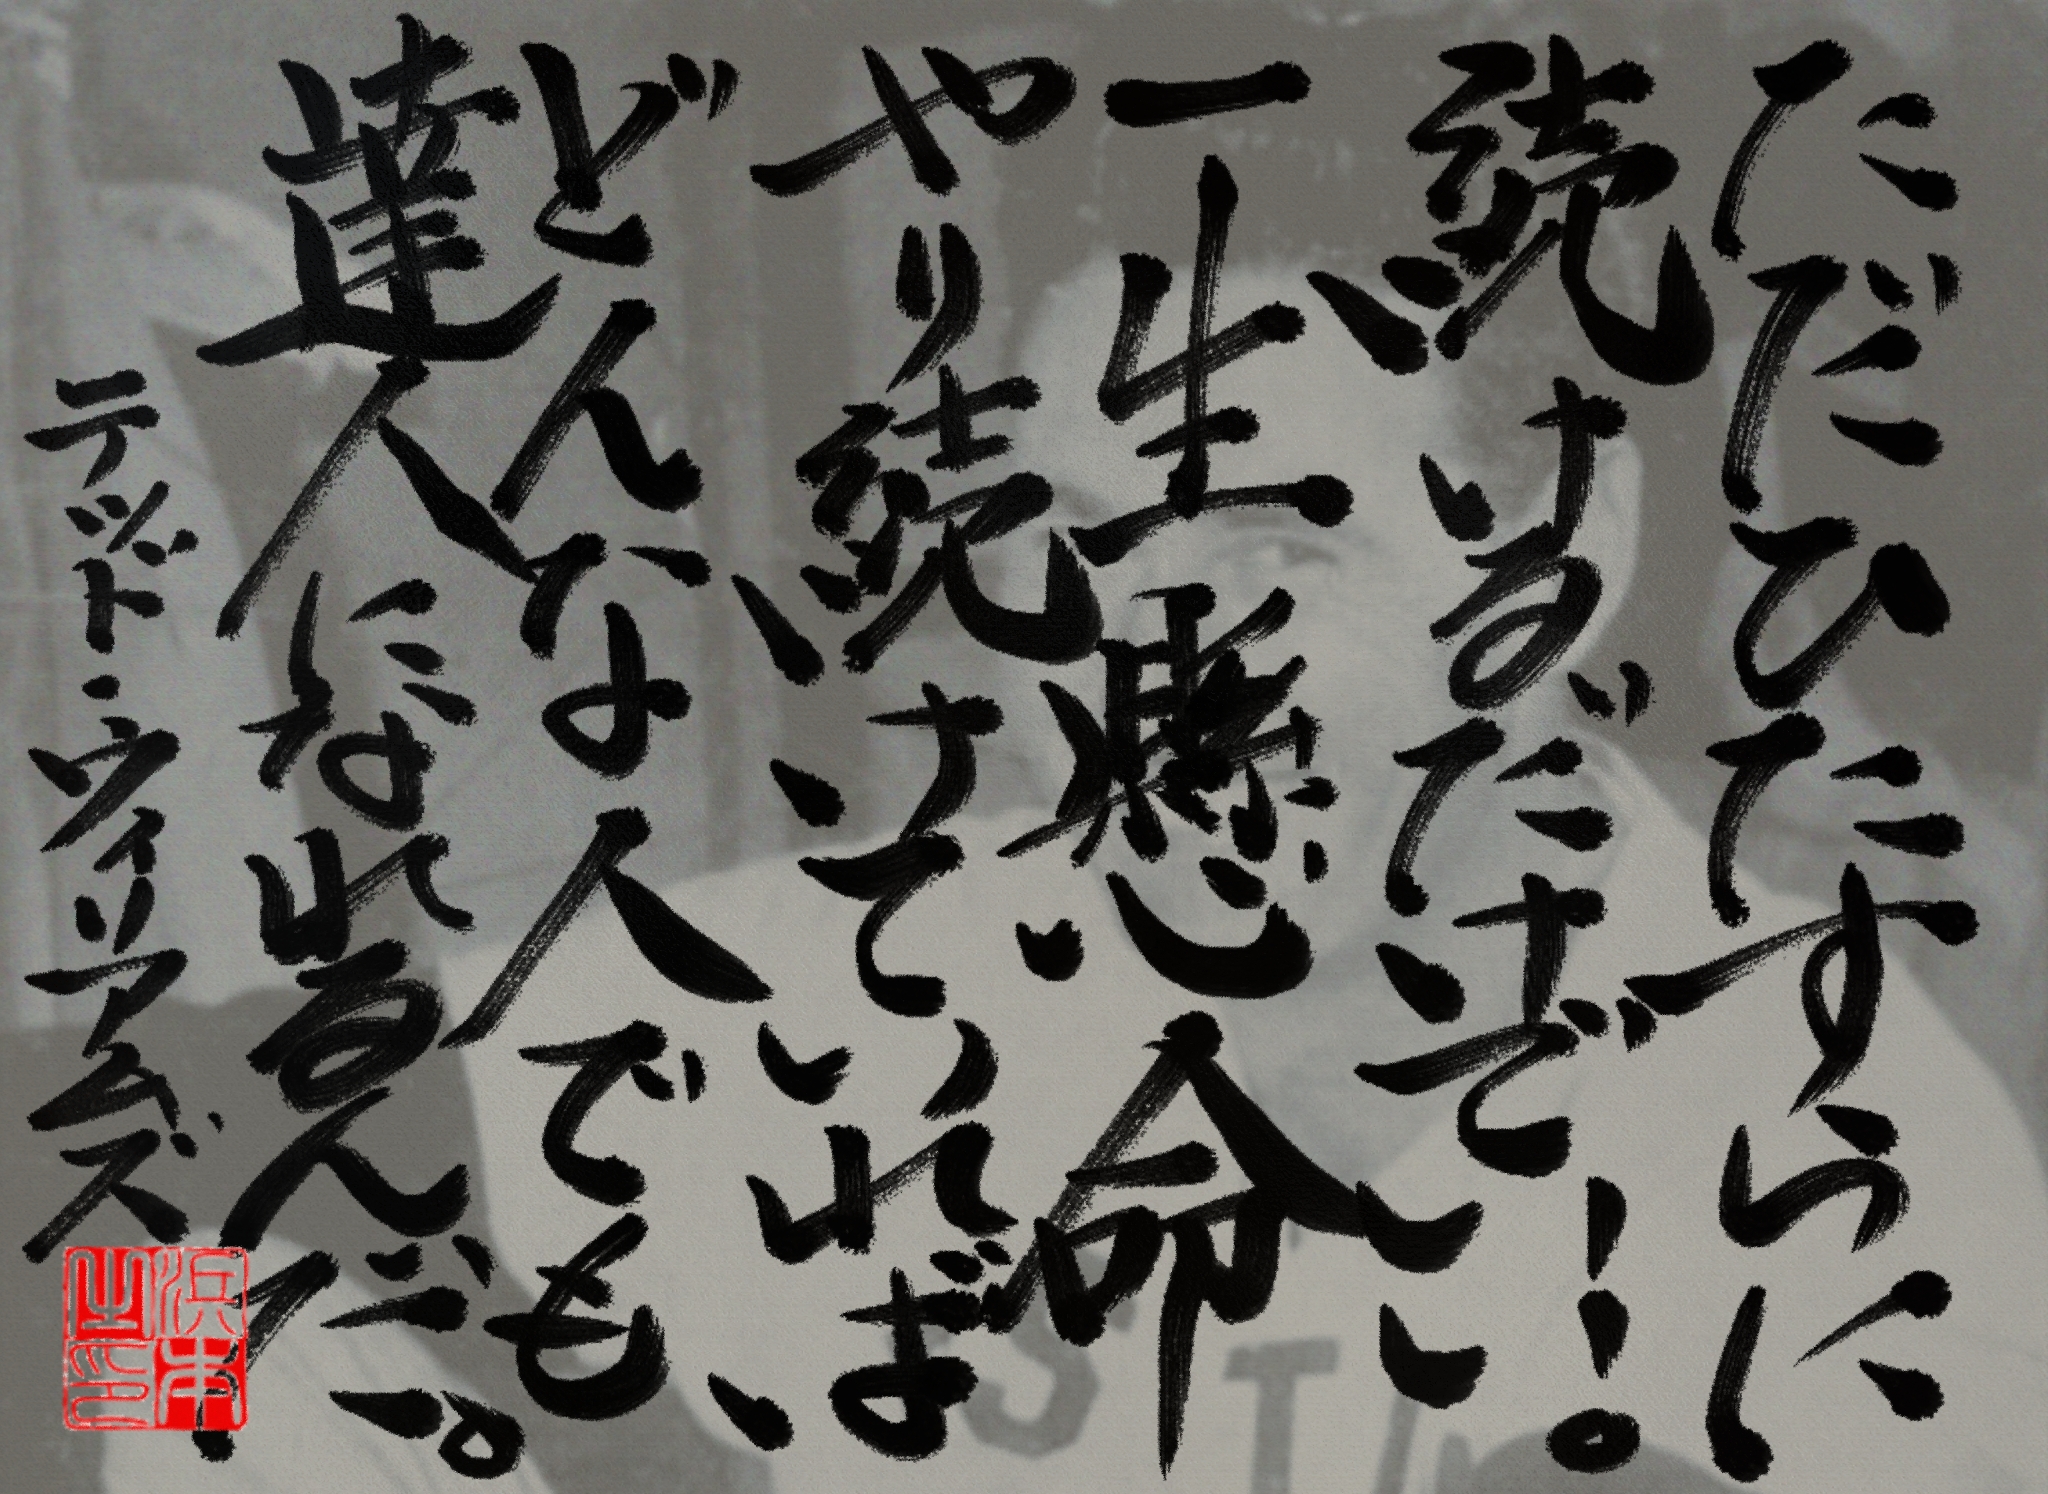 ただひたすらに
続けるだけでいい。
一生懸命
やり続けていれば、
どんな人でも
達人になれるんだ。
テッド・ウィリアムズ
浜本
之印